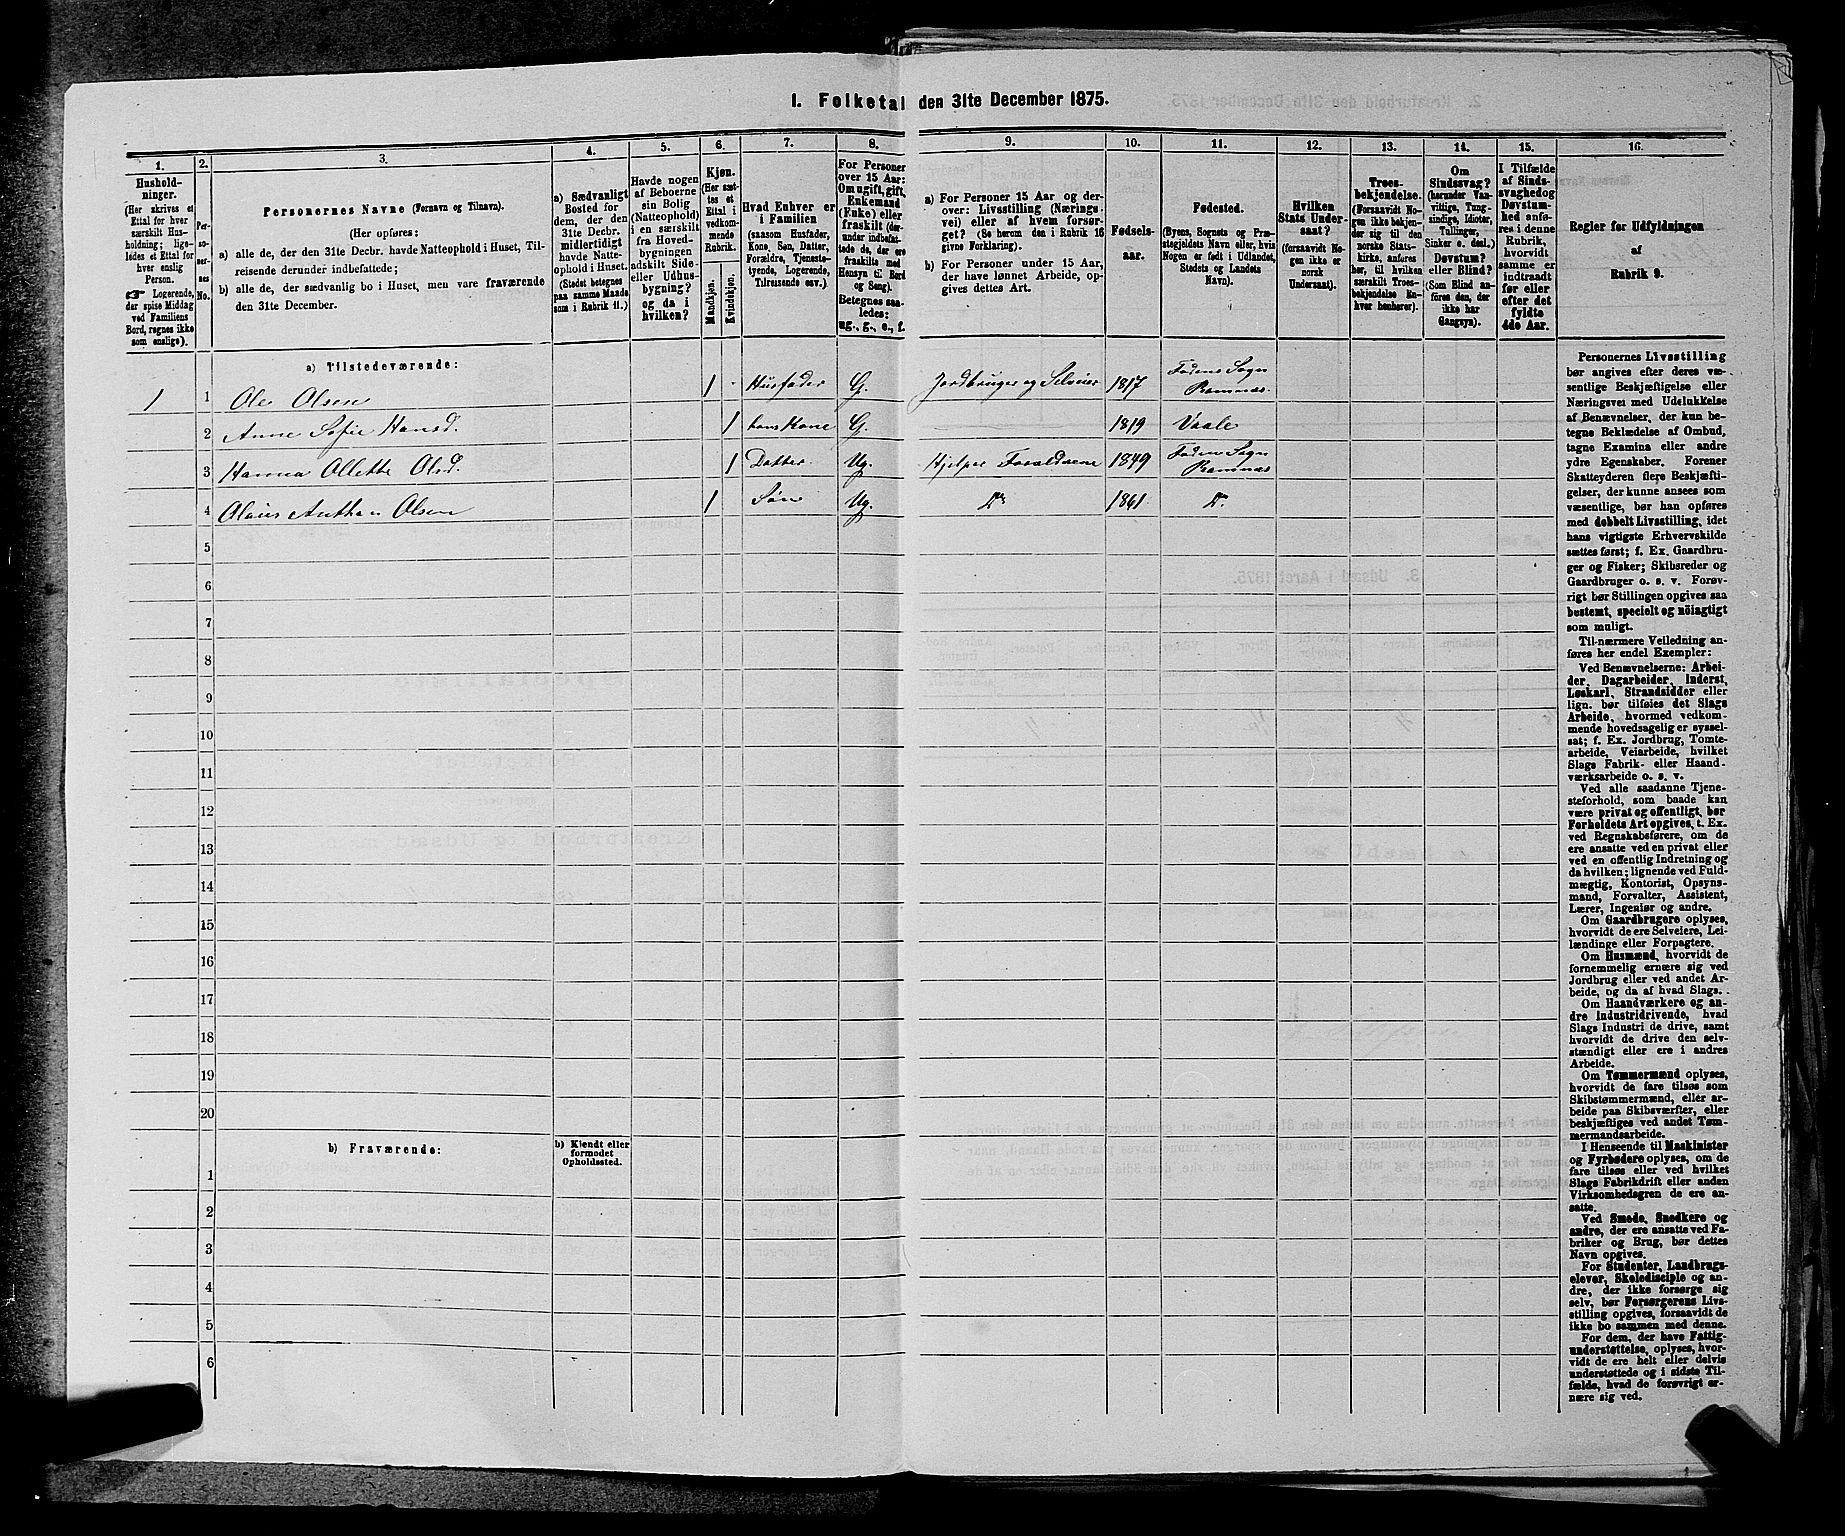 1. Folketal den 31te December 1875.
1.
Hushold-
ninger.
(Her skrives et
Ettal for hver
særskilt Hus-
holdning; lige-
ledes et Ettal for
hver enslig
Person.
☞ Logerende,
der spise Middag
ved Familiens
Bord, regnes ikke
som enslige).
2.
Per-
so-
ner-
nes
No.
3.
Personernes Navne (Fornavn og Tilnavn).
(Her opføres:
a) alle de, der den 31te Decbr. havde Natteophold i Huset, Til-
reisende derunder indbefattede;
b) alle de, der sædvanlig bo i Huset, men vare fraværende
den 31te December.
4.
a) Sædvanligt
Bosted for
dem, der den
31te Decbr.
midlertidigt
havde Natte-
ophold i Huset.
(Stedet betegnes
paa samme Maade
som i Rubrik 11.)
5.
Havde nogen
af Beboerne
sin Bolig
(Natteophold)
i en særskilt
fra Hoved-
bygningen
adskilt Side-
eller Udhus-
bygning?
og da i
hvilken?
6.
Kjøn.
(Her sæt-
tes et
Ettal i
vedkom-
mende
Rubrik.
Mandkjøn.
Kvindekjøn.
7.
Hvad Enhver er
i Familien
(saasom Husfader,
Kone, Søn, Datter,
Forældre, Tjeneste-
tyende, Logerende,
Tilreisende osv.)
8.
For Personer
over 15 Aar:
Om ugift, gift,
Enkemand
(Enke) eller
fraskilt (der-
under indbefat-
tede de, der ere
fraskilte med
Hensyn til Bord
og Seng).
Betegnes saa-
ledes:
ug., g., e., f.
9.
a) For Personer 15 Aar og der-
over: Livsstilling (Nærings-
vei) eller af hvem forsør-
get? (Se herom den i Rubrik 16
givne Forklaring).
b) For Personer under 15 Aar,
der have lønnet Arbeide, op-
gives dettes Art.
10.
Fødsels-
aar.
11.
Fødested.
(Byens, Sognets og Præ-
stegjeldets Navn eller, hvis
Nogen er født i Udlandet,
Stedets og Landets
Navn).
12.
Hvilken
Stats Under-
saat?
(forsaavidt No-
gen ikke er
norsk
Undersaat).
13.
Troes-
bekjendelse.
(Forsaavidt No-
gen ikke bekjen-
der sig til den
norske Stats-
kirke, anføres
her, til hvilken
særskilt Troes-
bekjendelse En-
hver henhører).
14.
Om
Sindssvag?
(herunder Van-
vittige, Tung-
sindige, Idioter,
Tullinger,
Sinker o. desl.)
Døvstum?
eller Blind?
(Som Blind an-
føres den, der
ikke har
Gangsyn).
15.
I Tilfælde
af Sinds-
svaghed og
Døvstum-
hed anfø-
res i denne
Rubrik,
hvorvidt
samme er
indtraadt
før eller
efter det
fyldte
4de Aar.
16.
Regler for Udfyldningen
af
Rubrik 9.
a) Tilstedeværende:
1 1 Ole Olsen 1 Husfader G. Jordbruger og Selveier 1817 Fødens Sogn Ramnæs.
2 Anne Sofie Hansd. 1 hans Kone G. 1819 Vaale
3 Hanna Ollette Olsd. 1 Datter Ug. Hjelper Foreldrene 1849 Fødens Sogn Ramnæs
4 Olaus Anthon Olsen 1 Søn Ug. Do 1861 Do.
5
6
7
8
9
10
11
12
13
14
15
16
17
18
19
20
b) Fraværende:
b) Kjendt eller
formodet
Opholdssted.
1
2
3
4
5
6
Personernes Livsstilling
bør angives efter deres væ-
sentlige Beskjæftigelse eller
Næringsvei med Udelukkelse
af Benævnelser, der kun be-
tegne Beklædelse af Ombud,
tagne Examina eller andre
ydre Egenskaber. Forener
Skatteyderen flere Beskjæfti-
gelser, der kunne ansees som
væsentlige, bør han opføres
med dobbelt Livsstilling, idet
hans vigtigste Erhvervskilde
sættes først; f. Ex. Gaardbru-
ger og Fisker; Skibsreder og
Gaardbruger o. s. v. Forøv-
rigt bør Stillingen opgives saa
bestemt, specielt og nöiagtigt
som muligt.
Til nærmere Veiledning an-
føres her endel Exempler:
Ved Benævnelserne: Arbei-
der, Dagarbeider, Inderst,
Løskarl, Strandsidder eller
lign. bør tilføies det Slags
Arbeide, hvormed vedkom-
mende hovedsagelig er syssel-
sat; f. Ex. Jordbrug, Tomte-
arbeide, Veiarbeide, hvilket
Slags Fabrik- eller Haand-
værksarbeide o. s. v.
Ved alle saadanne Tjene-
steforhold, som baade kan
være privat og offentligt, bør
Forholdets Art opgives, t. Ex.
ved Regnskabsførere, om de
ere ansatte ved en privat eller
ved en offentlig Indretning og
da hvilken; lignende ved Fuld-
mægtig, Kontorist, Opsyns-
mand, Forvalter, Assistent,
Lærer, Ingeniør og andre.
Om Gaardbrugere oplyses,
hvorvidt de ere Selveiere, Lei-
lændinge eller Forpagtere.
Om Husmænd, hvorvidt de
fornemmelig ernære sig ved
Jordbrug eller ved andet Ar-
beide, og da af hvad Slags.
Om Haandværkere og an-
dre Industridrivende, hvad
Slags Industri de drive, samt
hvorvidt de drive den selv-
stændigt eller ere i andres
Arbeide.
Om Tømmermænd oplyses,
hvorvidt de fare tilsøs som
Skibstømmermænd, eller ar-
beide paa Skibsværfter, eller
beskjæftiges ved andet Tøm-
mermandsarbeide.
I Henseende til Maskinister
og Fyrbødere oplyses, om de
fare tilsøs eller ved hvilket
Slags Fabrikdrift eller anden
Virksomhedsgren de ere an-
satte.
Ved Smede, Snedkere og
andre, der ere ansatte ved Fa-
briker og Brug, bør dettes
Navn opgives.
For Studenter, Landbrugs-
elever, Skoledisciple og an-
dre, der ikke forsørge sig
selv, bør Forsørgerens Livs-
stilling opgives, forsaavidt de
ikke bo sammen med denne.
For dem, der have Fattig-
understøttelse, oplyses, hvor-
vidt de ere helt eller delvis
understøttede og i sidste Til-
fælde, hvad de forøvrigt er-
nære sig ved.